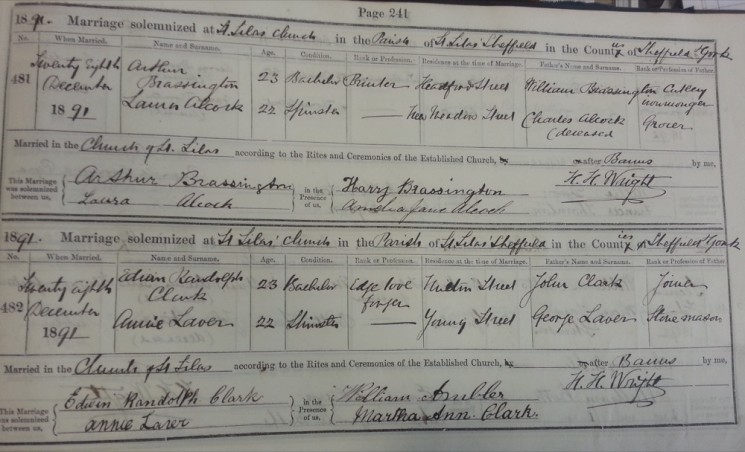 Page 241
1891. Marriage solemnized at St. Silas Church in the Parish of St. Silas Sheffield in the Counties of Sheffield & York
No. When Married. Name and Surname. Age. Condition. Rank or Profession. Residence at the time of Marriage. Father's Name and Surname. Rank or Profession of Father.
481 Twenty eighth December 1891 Arthur Brassington 23 Bachelor Printer Headford Street William Brassington Cutlery
Laura Alcock 22 Spinster — Street Charles Alcock (deceased) Grocer
Married in the Church of St. Silas according to the Rites and Ceremonies of the Established Church, by or after Banns by me,
This Marriage was solemnized between us, Arthur Brassington Laura Alcock in the Presence of us, Harry Brassington Amelia Jane Alcock H. H. Wright
1891. Marriage solemnized at St Silas' Church in the Parish of St Silas' Sheffield in the Counties of Sheffield & York
No. When Married. Name and Surname. Age. Condition. Rank or Profession. Residence at the time of Marriage. Father's Name and Surname. Rank or Profession of Father.
482 Twenty eighth December 1891 Edwin Randolph Clark 23 Bachelor Edge Tool forger Street John Clark Joiner
Annie Laver 22 Spinster — Young Street George Laver Stone mason
Married in the Church of St. Silas according to the Rites and Ceremonies of the Established Church, by or after Banns by me,
This Marriage was solemnized between us, Edwin Randolph Clark Annie Laver in the Presence of us, William Ambler Martha Ann Clark. H. H. Wright